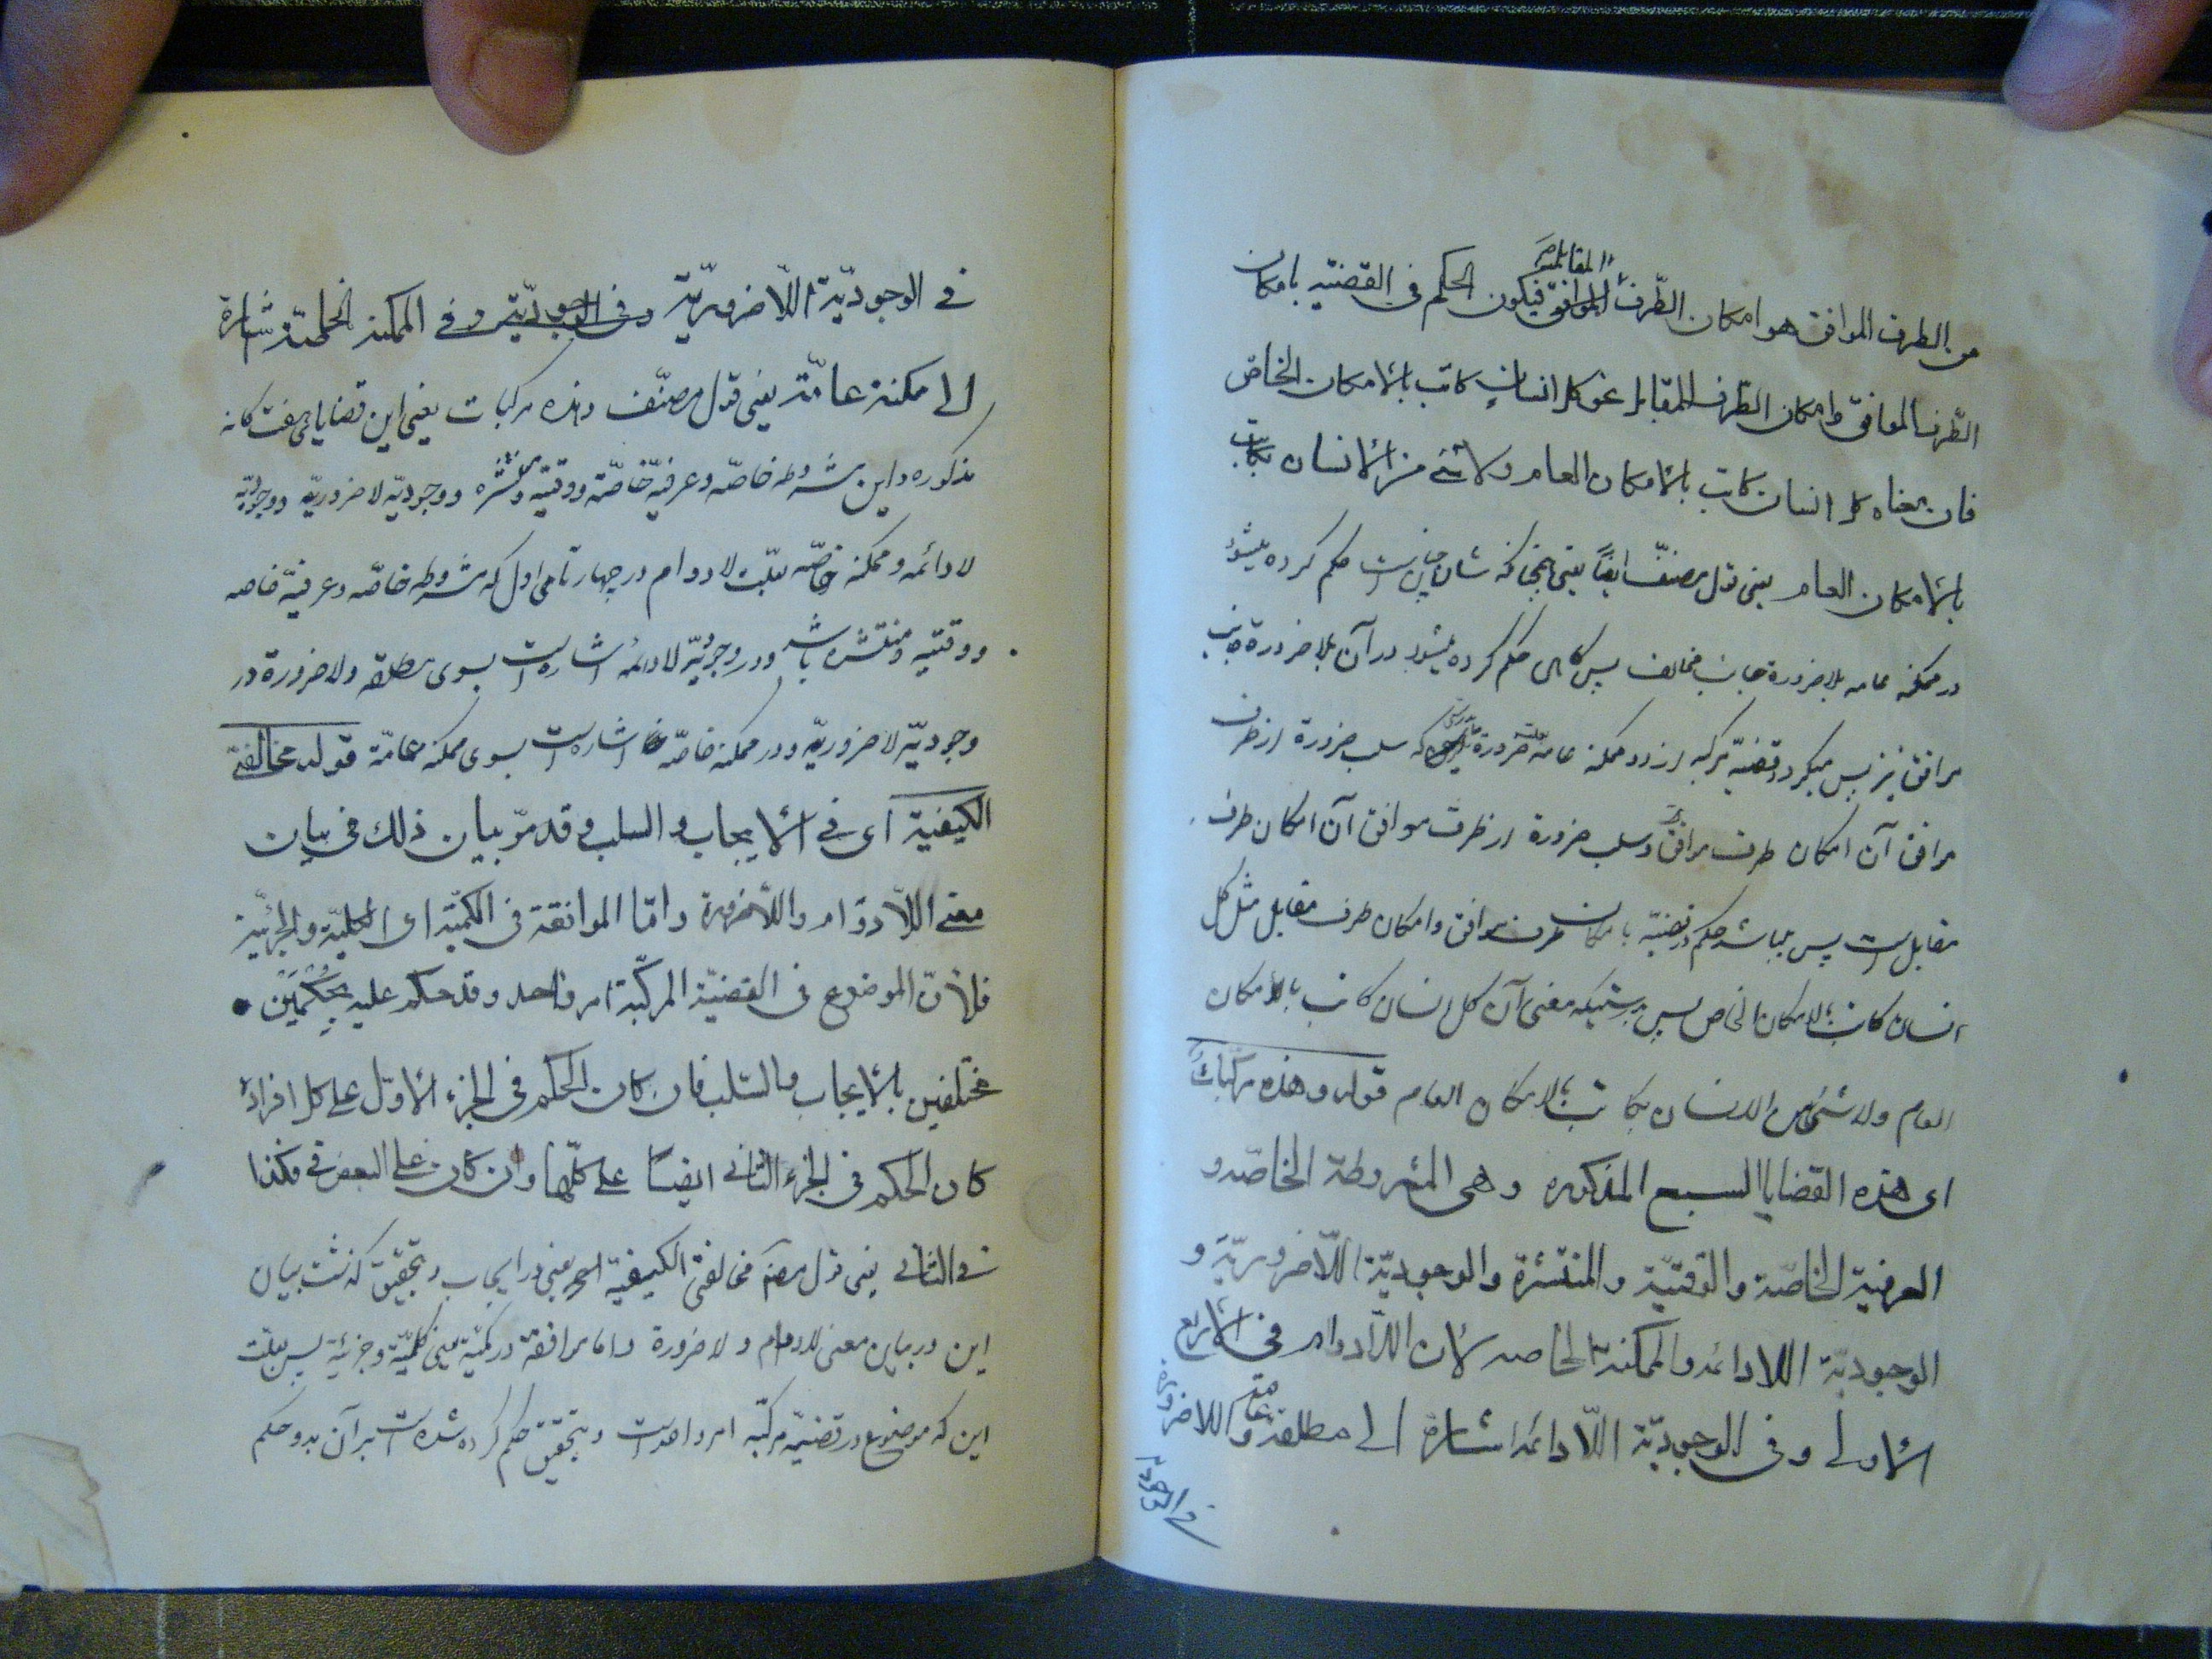 من الطرف الموافق هو امكان الطّرف الموافق المقابل فيكون الحكم فى القضيّه بامكان
الطّرف الموافق وامكان الطّرف المقابل نحو كل انسان كاتب بالامكان الخاص
فان معناه كل انسان كاتب بالامكان العام ولا شئ من الانسان بكاتب
بالامكان العام يعنى قول مصنّف ايضًا يعنى همچنانكه شان چنين است حكم كرده ميشود
در ممكنه عامه بلا ضرورة جانب مخالف پس گاهى حكم كرده ميشود در آن بلا ضرورة جانب
موافق نيز پس ميگردد قضيّه مركبه از دو ممكنه عامه ضرورة كه سلب ضرورة از طرف
موافق آن امكان طرف موافق و سلب ضرورة از طرف موافق آن امكان طرف
مقابل است پس ميباشد حكم در قضيّه بامكان طرف موافق وامكان طرف مقابل مثل كل
انسان كاتب بالامكان الخاص پس بدرستيكه معنى آن كل انسان كاتب بالامكان
العام ولا شئ من الانسان بكاتب بالامكان العام قوله وهذه مركّبات
اى هذه القضايا السبع المذكوره وهى المشروطة الخاصّه و
العرفية الخاصّة والوقتيّة والمنتشرة والوجوديّة اللّاضروريّة و
الوجوديّة اللادائمه والممكنة الخاصه لان اللّادوام فى الاربع
الاولى وفى الوجوديّة اللّادائمه اشارة الى مطلقة عامة واللاضرورة
فى الوجوديّة
فى الوجوديّة اللّاضروريّة وفى الوجوديّة وفى الممكنه الخاصّة اشارة
الى مكنة عامّة يعنى قول مصنّف وهذه مركبات يعنى اين قضاياى هفت كانه
مذكوره واين مشروطه خاصّه وعرفيّه خاصّه ووقتيّه ومنتشره ووجوديّه لاضروريّه ووجوديّه
لادائمه وممكنه خاصّه بعلّت لادوام در چهارتاى اول كه مشروطه خاصّه وعرفيّه خاصه
ووقتيّه ومنتشره باشد ودر وجوديّه لادائمه اشاره است بسوى مطلقه ولاضرورة در
وجوديّه لاضروريّه ودر ممكنه خاصّه اشاره است بسوى ممكنه عامّة قوله مخالفتى
الكيفية اى فى الايجاب والسلب وقد مرّ بيان ذلك فى بيان
معنى اللّادوام واللّاضرورة وامّا الموافقة فى الكميّة اى الكليّة والجزئيّة
فلانّ الموضوع فى القضيّة المركّبة امر واحد وقد حكم عليه بحكمين
مختلفين بالايجاب والسّلب فان كان الحكم فى الجزء الاوّل على كل افراد
كان الحكم فى الجزء الثانى ايضًا على كلّها وان كان على البعض فكذا
فى الثانى يعنى قول مصنف مخالفتى الكيفية اه يعنى در ايجاب وبتحقيق گذشت بيان
اين در بيان معنى لادوام ولاضرورة واما موافقة در كميّة يعنى كليّة وجزئية پس بعلّت
اين كه موضوع در قضيّه مركّبه امر واحد است وبتحقيق حكم كرده شده است بر آن بدو حكم